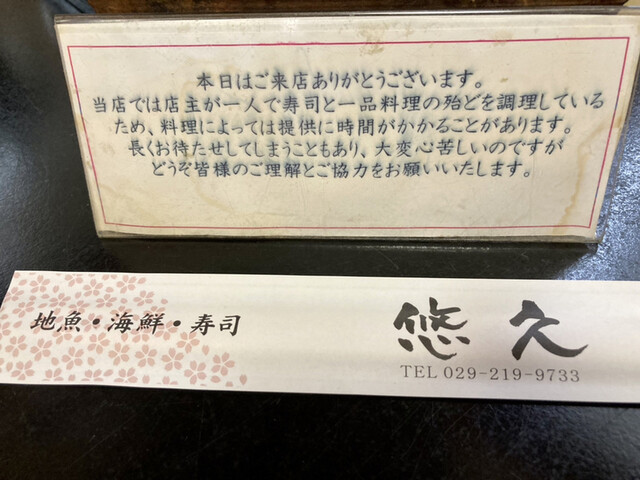 本日はご来店ありがとうございます。
当店では店主が一人で寿司と一品料理の殆どを調理している
ため、料理によっては提供に時間がかかることがあります。
長くお待たせしてしまうこともあり、大変心苦しいのですが
どうぞ皆様のご理解とご協力をお願いいたします。
地魚・海鮮・寿司
悠久
TEL 029-219-9733